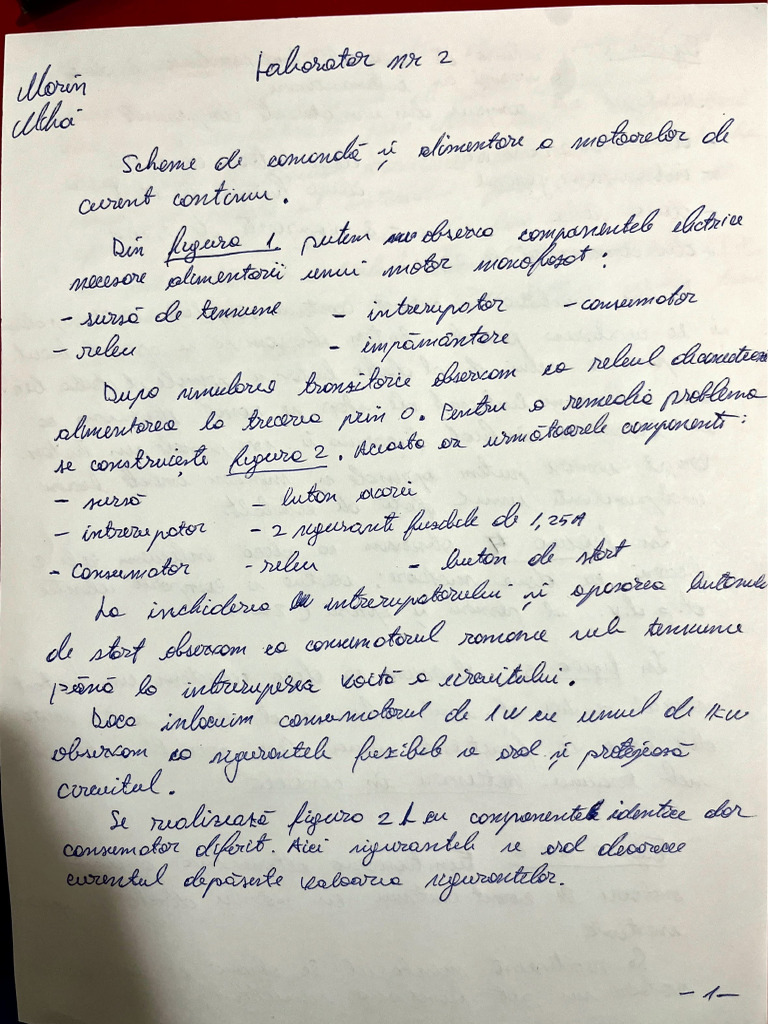 Laborator nr 2
Marin
Mihai
Scheme de comandă și alimentare a motoarelor de
curent continuu.
Din figura 1 putem observa componentele electrice
necesare alimentarii unui motor monofazat:
- sursă de tensiune - intrerupator - consumator
- releu - împământare
Dupa simularea tranzitorie observam ca releul deconectează
alimentarea la trecerea prin 0. Pentru a remedia problema
se construiește figura 2. Aceasta are următoarele componente:
- sursă - buton avarei
- intrerupator - 2 sigurante fuzibile de 1,25A
- consumator - releu - buton de start
La inchiderea intrerupatorului și apasarea butonului
de start observam ca consumatorul ramâne sub tensiune
până la intreruperea voită a circuitului.
Daca inlocuim consumatorul de 1W cu unul de 1kW
observam ca sigurantele fuzibile se ard și protejează
circuitul.
Se realizează figura 2.1 cu componentele identice dar
consumator diferit. Aici sigurantele se ard deoarece
curentul depășeste valoarea sigurantelor.
-1-